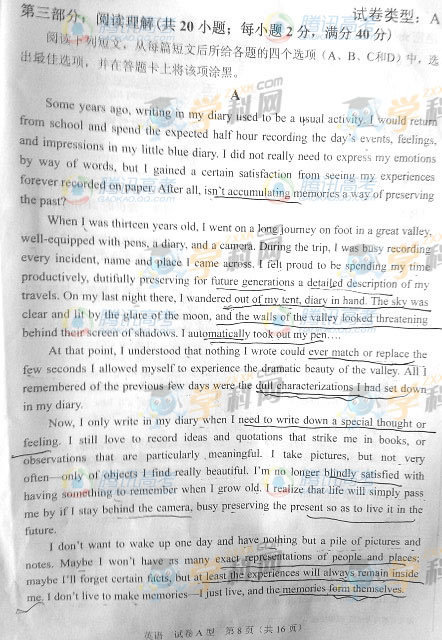 试卷类型：A
第三部分：阅读理解(共 20 小题；每小题 2 分，满分 40 分)
阅读下列短文，从每篇短文后所给各题的四个选项（A、B、C和D）中，选
出最佳选项，并在答题卡上将该项涂黑。
A
Some years ago, writing in my diary used to be a usual activity. I would return
from school and spend the expected half hour recording the day's events, feelings,
and impressions in my little blue diary. I did not really need to express my emotions
by way of words, but I gained a certain satisfaction from seeing my experiences
forever recorded on paper. After all, isn't accumulating memories a way of preserving
the past?
When I was thirteen years old, I went on a long journey on foot in a great valley,
well-equipped with pens, a diary, and a camera. During the trip, I was busy recording
every incident, name and place I came across. I felt proud to be spending my time
productively, dutifully preserving for future generations a detailed description of my
travels. On my last night there, I wandered out of my tent, diary in hand. The sky was
clear and lit by the glare of the moon, and the walls of the valley looked threatening
behind their screen of shadows. I automatically took out my pen….
At that point, I understood that nothing I wrote could ever match or replace the
few seconds I allowed myself to experience the dramatic beauty of the valley. All I
remembered of the previous few days were the dull characterizations I had set down
in my diary.
Now, I only write in my diary when I need to write down a special thought or
feeling. I still love to record ideas and quotations that strike me in books, or
observations that are particularly meaningful. I take pictures, but not very
often—only of objects I find really beautiful. I'm no longer blindly satisfied with
having something to remember when I grow old. I realize that life will simply pass
me by if I stay behind the camera, busy preserving the present so as to live it in the
future.
I don't want to wake up one day and have nothing but a pile of pictures and
notes. Maybe I won't have as many exact representations of people and places;
maybe I'll forget certain facts, but at least the experiences will always remain inside
me. I don't live to make memories—I just live, and the memories form themselves.
英语 试卷 A 型 第 8 页（共 16 页）